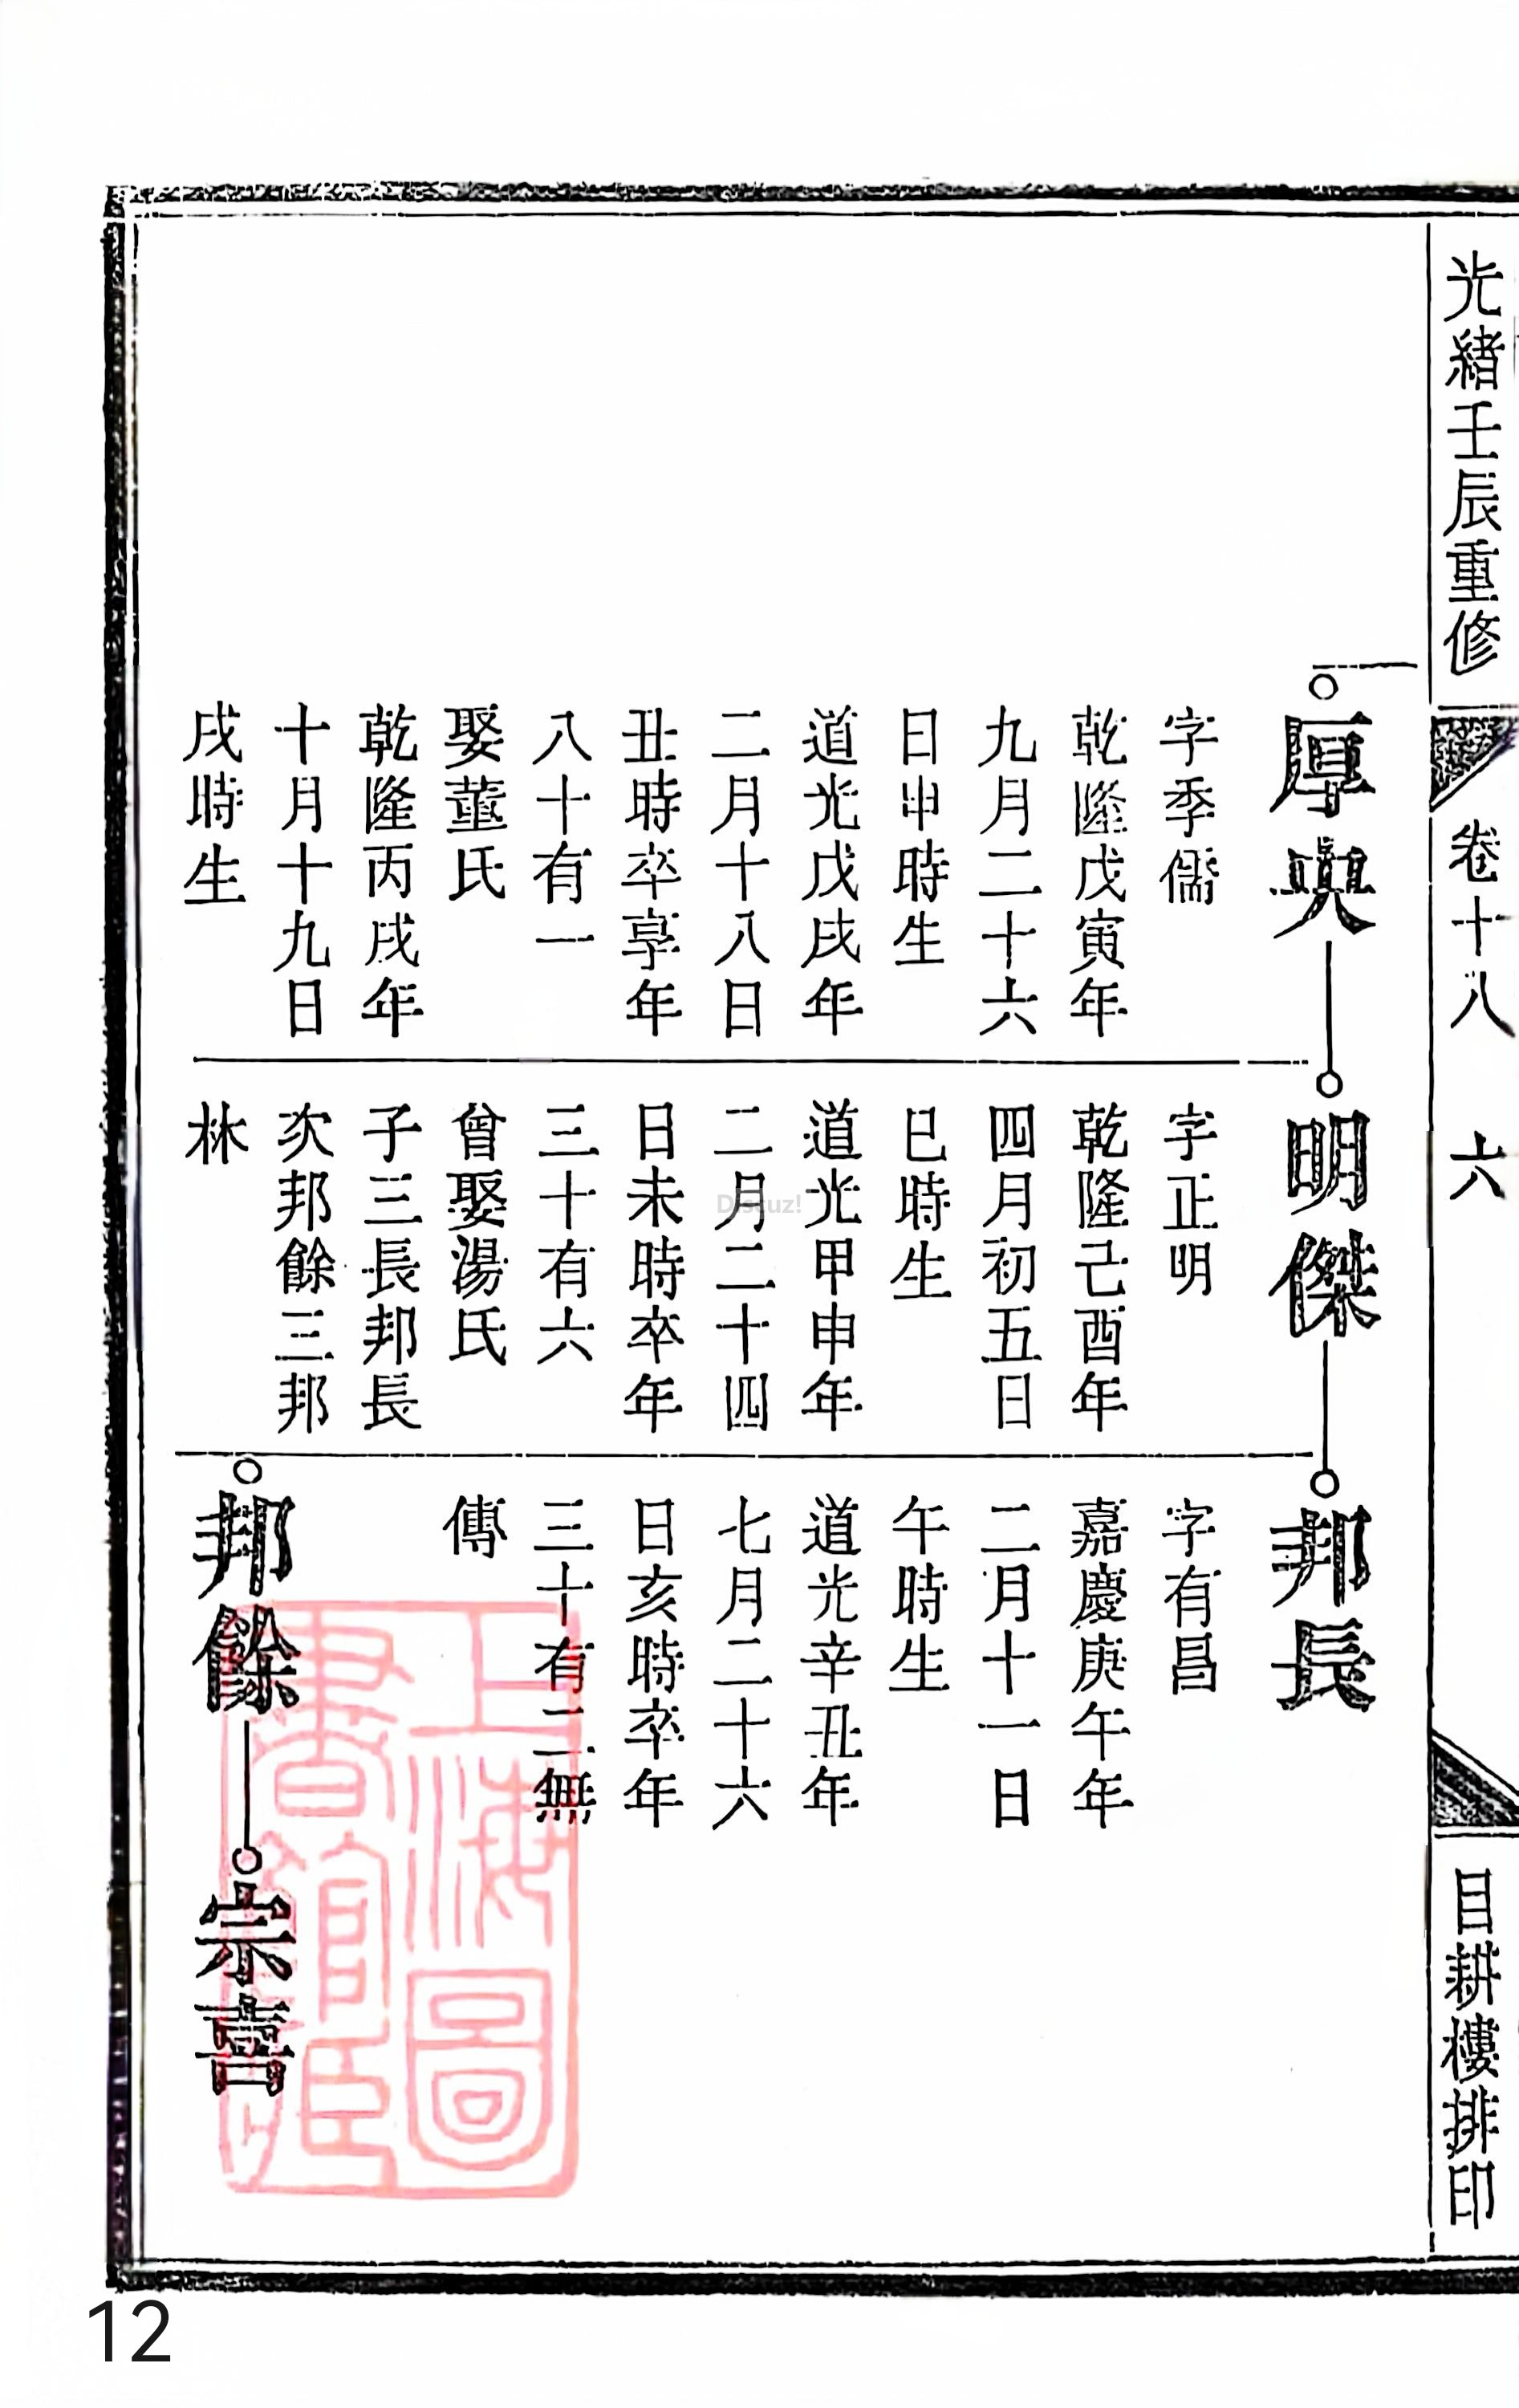 光緒壬辰重修
卷十八
六
目耕樓排印
厚輿
字季儒
乾隆戊寅年
九月二十六
日申時生
道光戊戌年
二月十八日
丑時卒享年
八十有一
娶董氏
乾隆丙戌年
十月十九日
戌時生
明傑
字正明
乾隆己酉年
四月初五日
巳時生
道光甲申年
二月二十四
日未時卒年
三十有六
曾娶湯氏
子三長邦長
次邦餘三邦
林
邦長
字有昌
嘉慶庚午年
二月十一日
午時生
道光辛丑年
七月二十六
日亥時卒年
三十有二無
傳
邦餘
宗喜
上海圖
書館臧
Discuz!
12